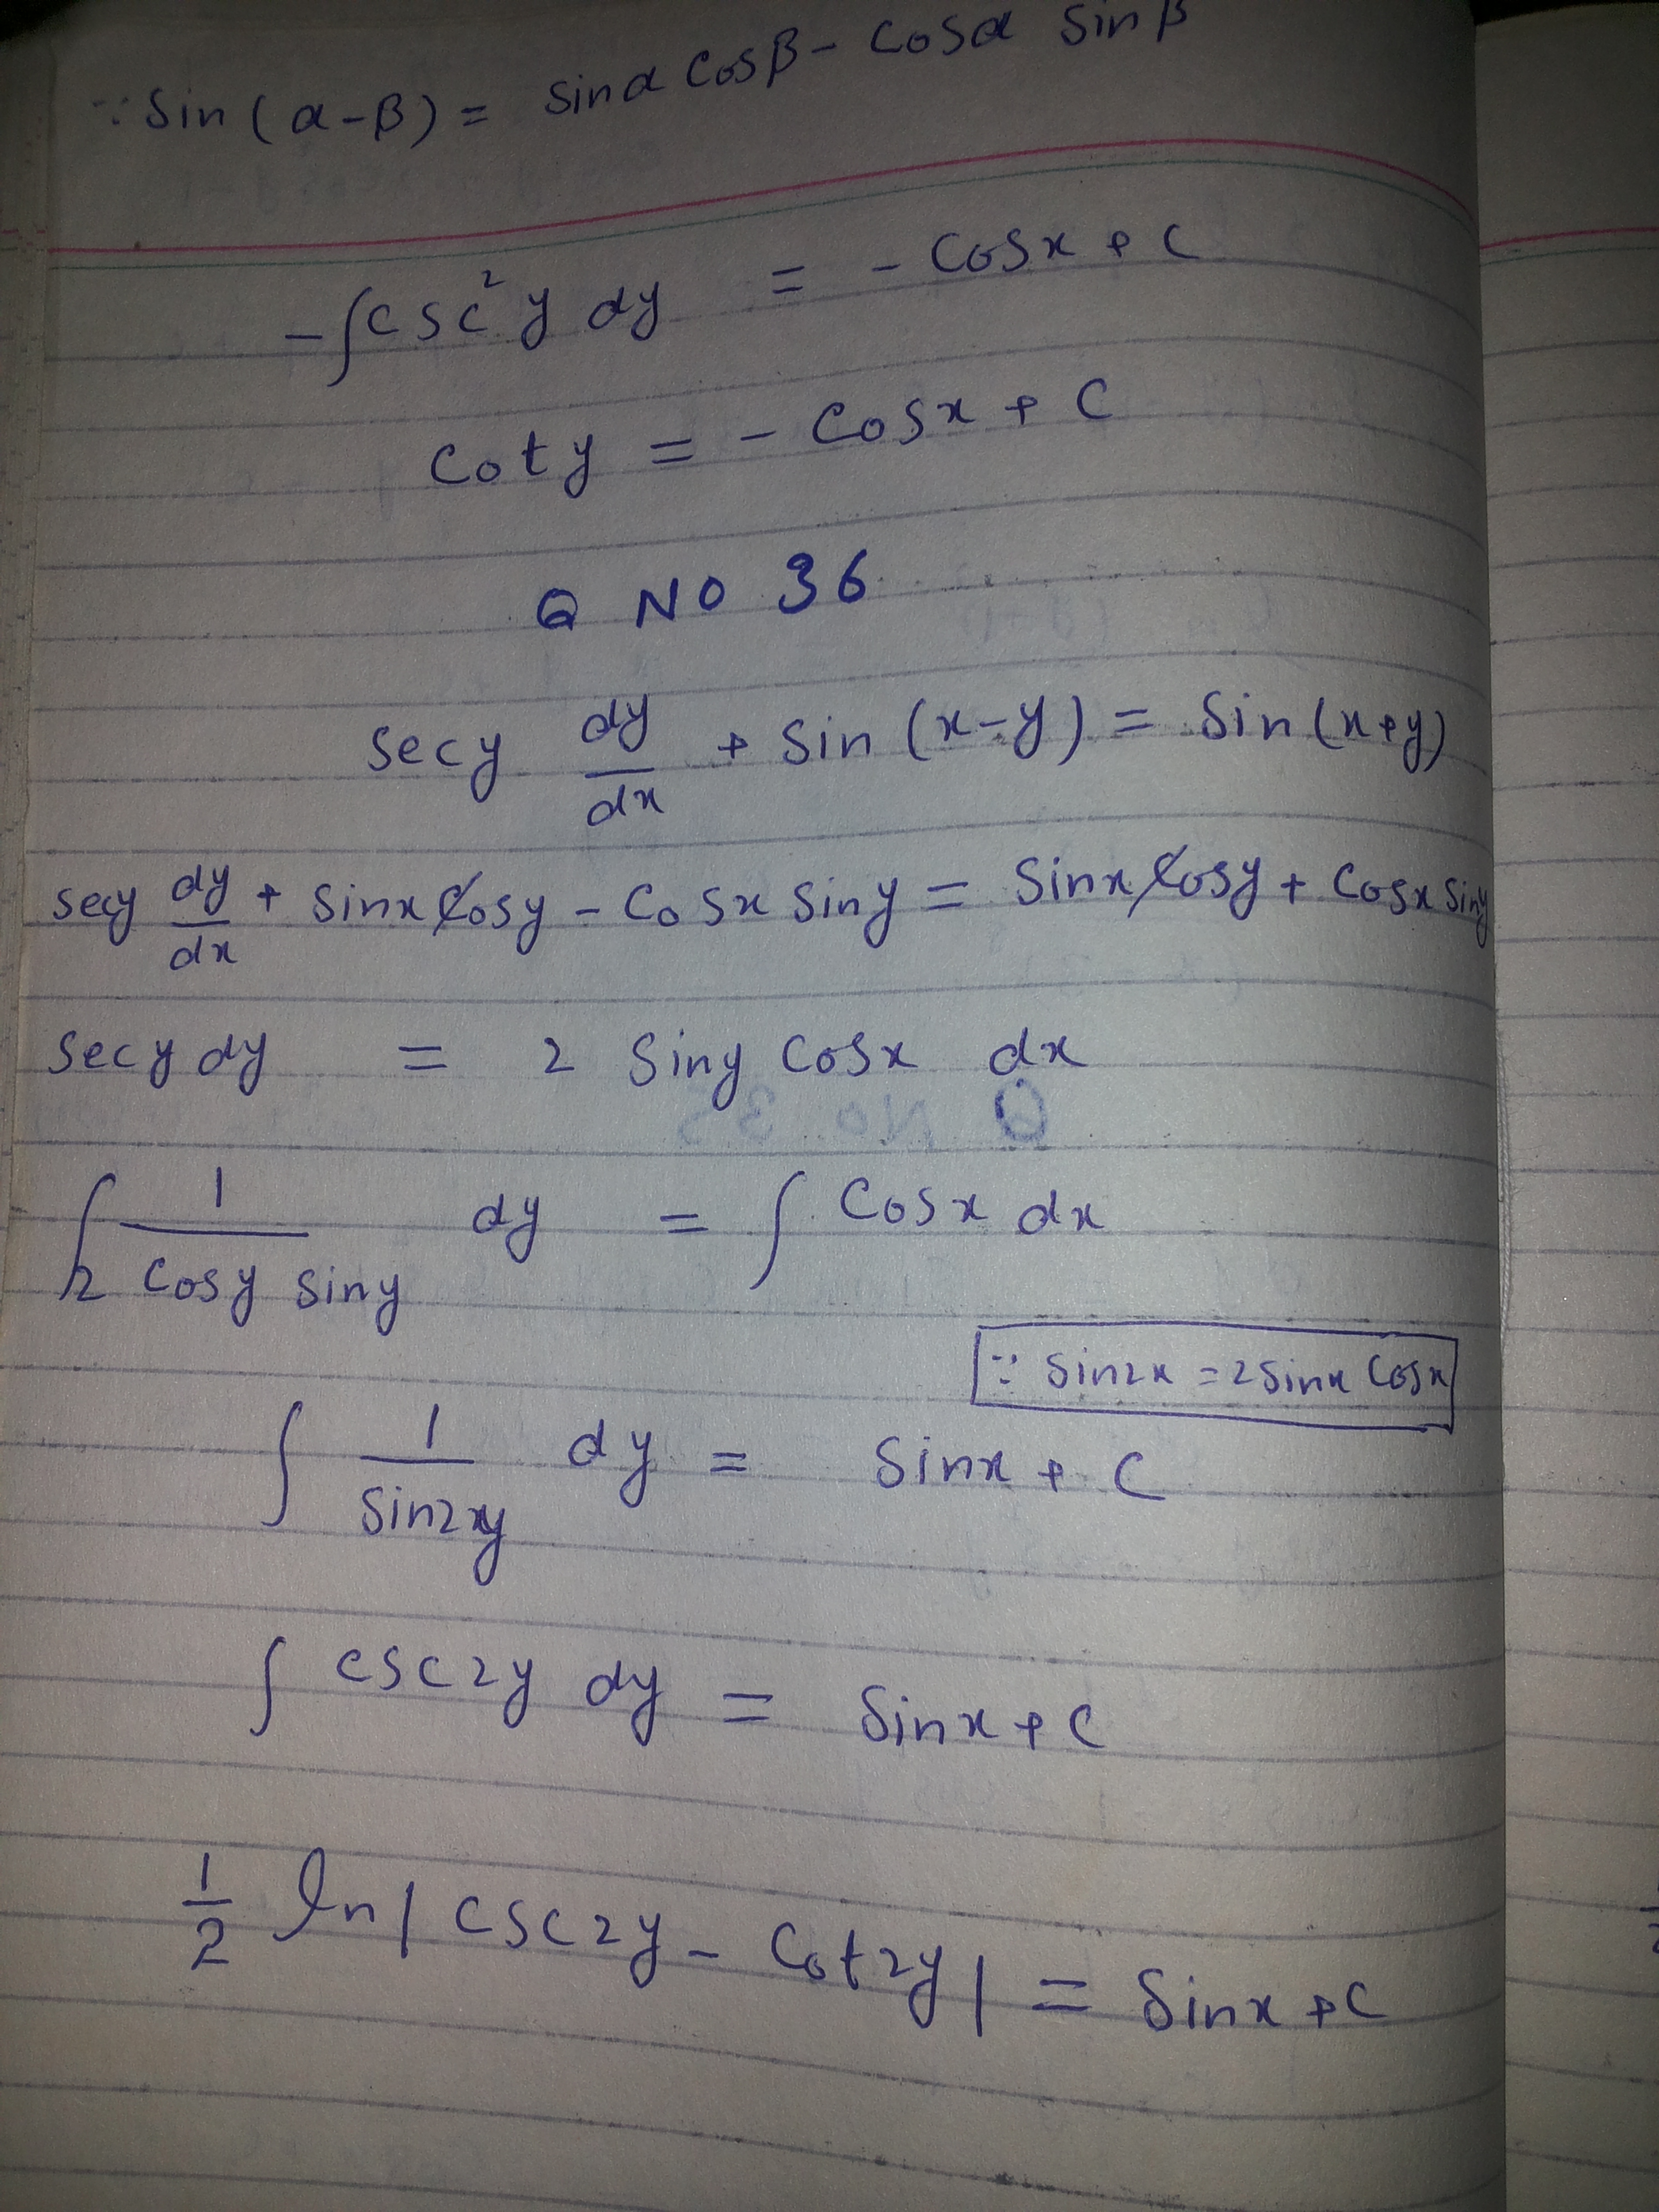 ∵ Sin(α-β) = Sinα Cosβ - Cosα Sinβ
-∫csc²y dy = -Cosx + C
Coty = -Cosx + C
Q NO 36
Secy dy/dx + Sin(x-y) = Sin(x+y)
Secy dy/dx + Sinx Cosy - Cosx Siny = Sinx Cosy + Cosx Siny
Secy dy = 2 Siny Cosx dx
∫ 1/(2 Cosy Siny) dy = ∫ Cosx dx
∵ Sin2x = 2Sinx Cosx
∫ 1/Sin2y dy = Sinx + C
∫ csc2y dy = Sinx + C
1/2 ln|csc2y - Cot2y| = Sinx + C